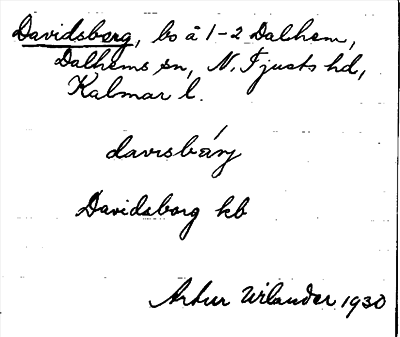 Davidsborg, bo å 1-2 Dalhem,
Dalhems sn, N. Tjusts hd,
Kalmar l.
davisbårj
Davidsborg kb
Artur Wilander 1930